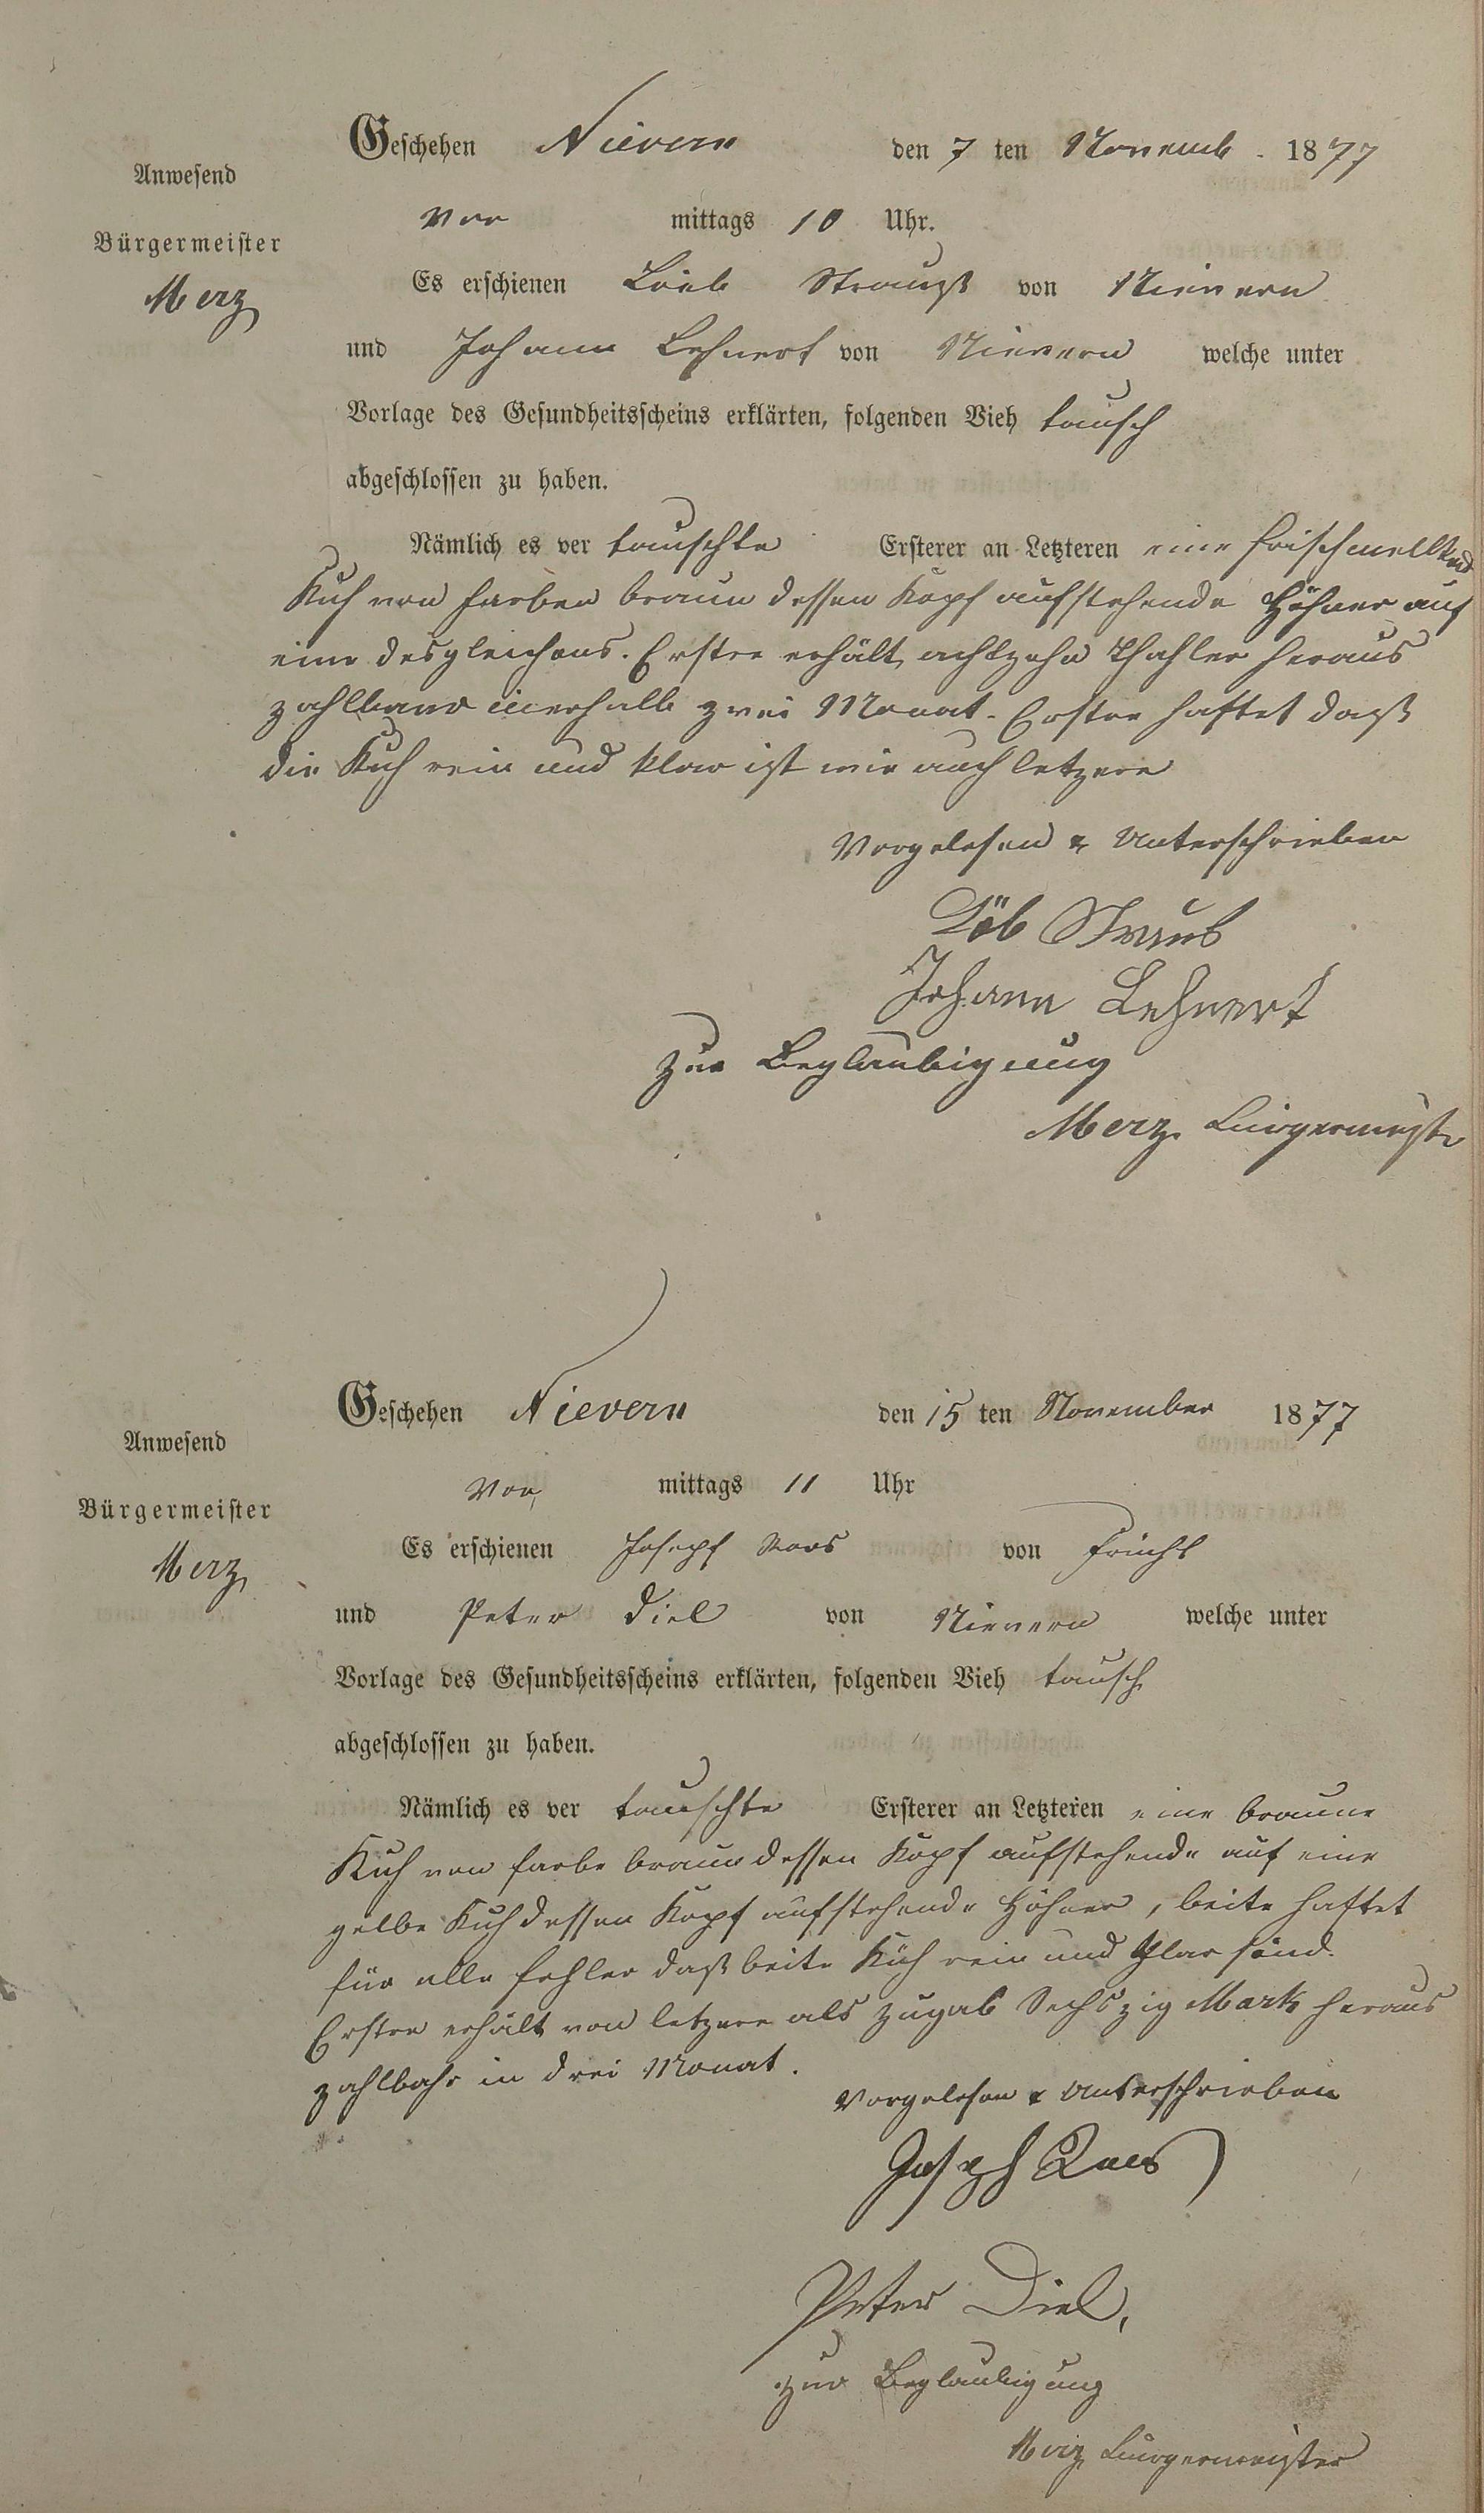 Geschehen Nievern den 7 ten Novemb. 1877
Anwesend
Vor mittags 10 Uhr.
Bürgermeister
Merz
Es erschienen Löeb Strauß von Nievern
und Johann Lehnert von Nievern welche unter
Vorlage des Gesundheitsscheins erklärten, folgenden Vieh tausch
abgeschlossen zu haben.
Nämlich es ver tauschte Ersterer an Letzteren eine frischmelkend
Kuh von farben braun dessen Kopf aufstehende Höhner auf
eine desgleichens. Erster erhält achtzehn Thahler heraus
zahlbar inerhalb zwei Monat. Erster haftet daß
die Kuh rein und klar ist wie auch letzere
Vorgelesen & Unterschrieben
Löb Straus
Johann Lehnert
Zur Beglaubigung
Merz Bürgermeister
Geschehen Nievern den 15 ten November 1877
Anwesend
Vor mittags 11 Uhr
Bürgermeister
Merz
Es erschienen Joseph von Frücht
und Peter Diel von Nievern welche unter
Vorlage des Gesundheitsscheins erklärten, folgenden Vieh tausch
abgeschlossen zu haben.
Nämlich es ver tauschte Ersterer an Letzteren eine braune
Kuh von farbe braun dessen Kopf aufstehende auf eine
gelbe Kuh dessen Kopf aufstehende Höhner, beite haftet
für alle fehler daß beite Küh rein und klar sind.
Erster erhält von letzere als zugab Sechszig Mark heraus
zahlbahr in drei Monat.
Vorgelesen & Unterschrieben
Joseph
Peter Diel,
zur Beglaubigung
Merz Bürgermeister